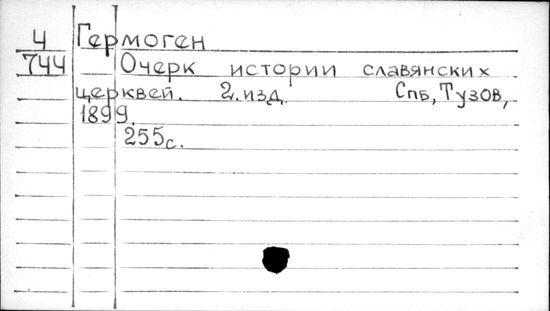 4 Гермоген
744 Очерк истории славянских
церквей. 2.изд. Спб, Тузов,
1899.
255с.